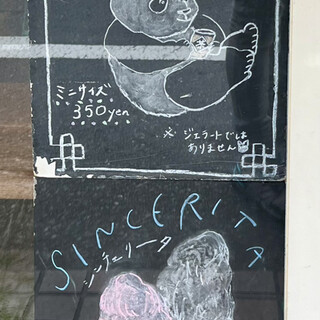 ミニサイズ
350yen
※ジェラートでは
ありません
SINCERITA
シンチェリータ